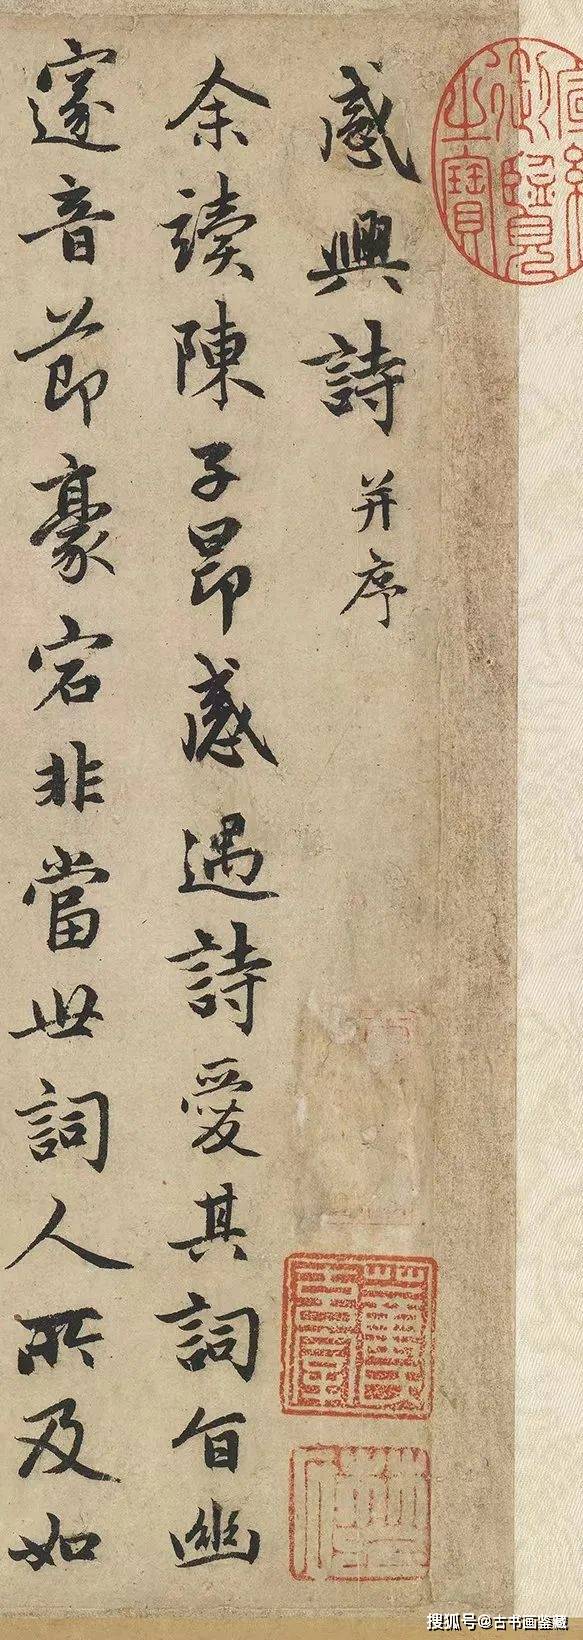 御覽
之寶
感興詩并序
余讀陳子昂感遇詩愛其詞旨幽
邃音節豪宕非當世詞人所及如
搜狐号@古书画鉴藏